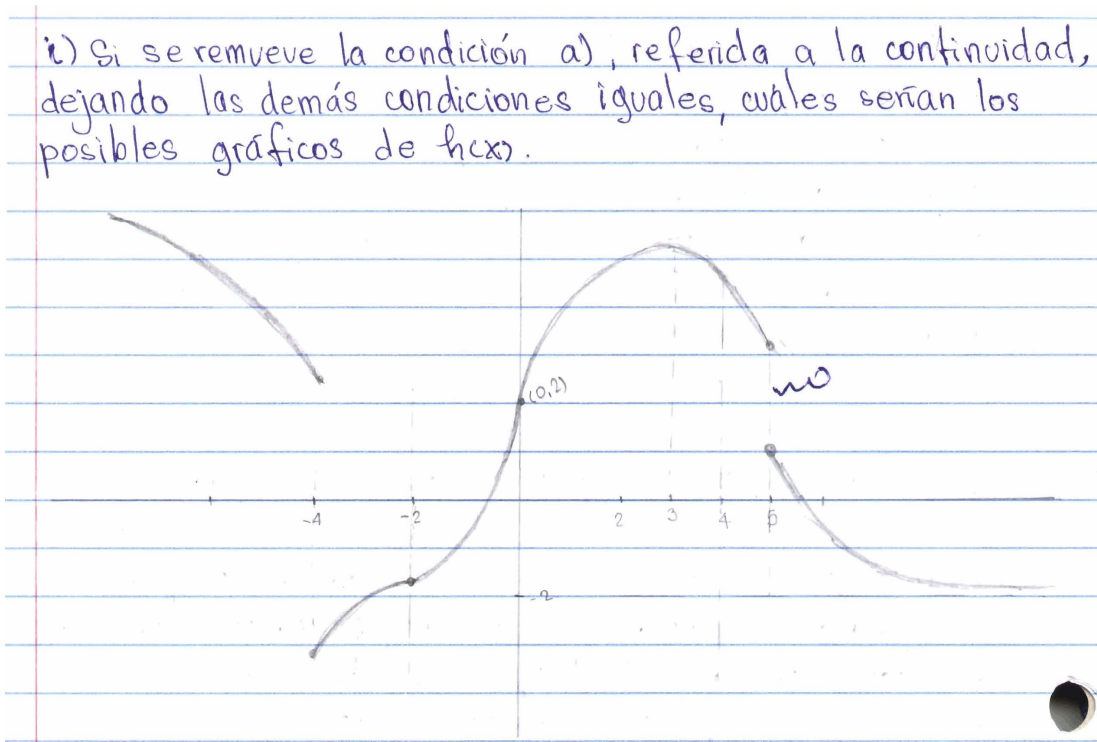 i) Si se remueve la condición a), referida a la continuidad,
dejando las demás condiciones iguales, cuáles serían los
posibles gráficos de h(x).
(0,2)
no
-4 -2 2 3 4 5
-2